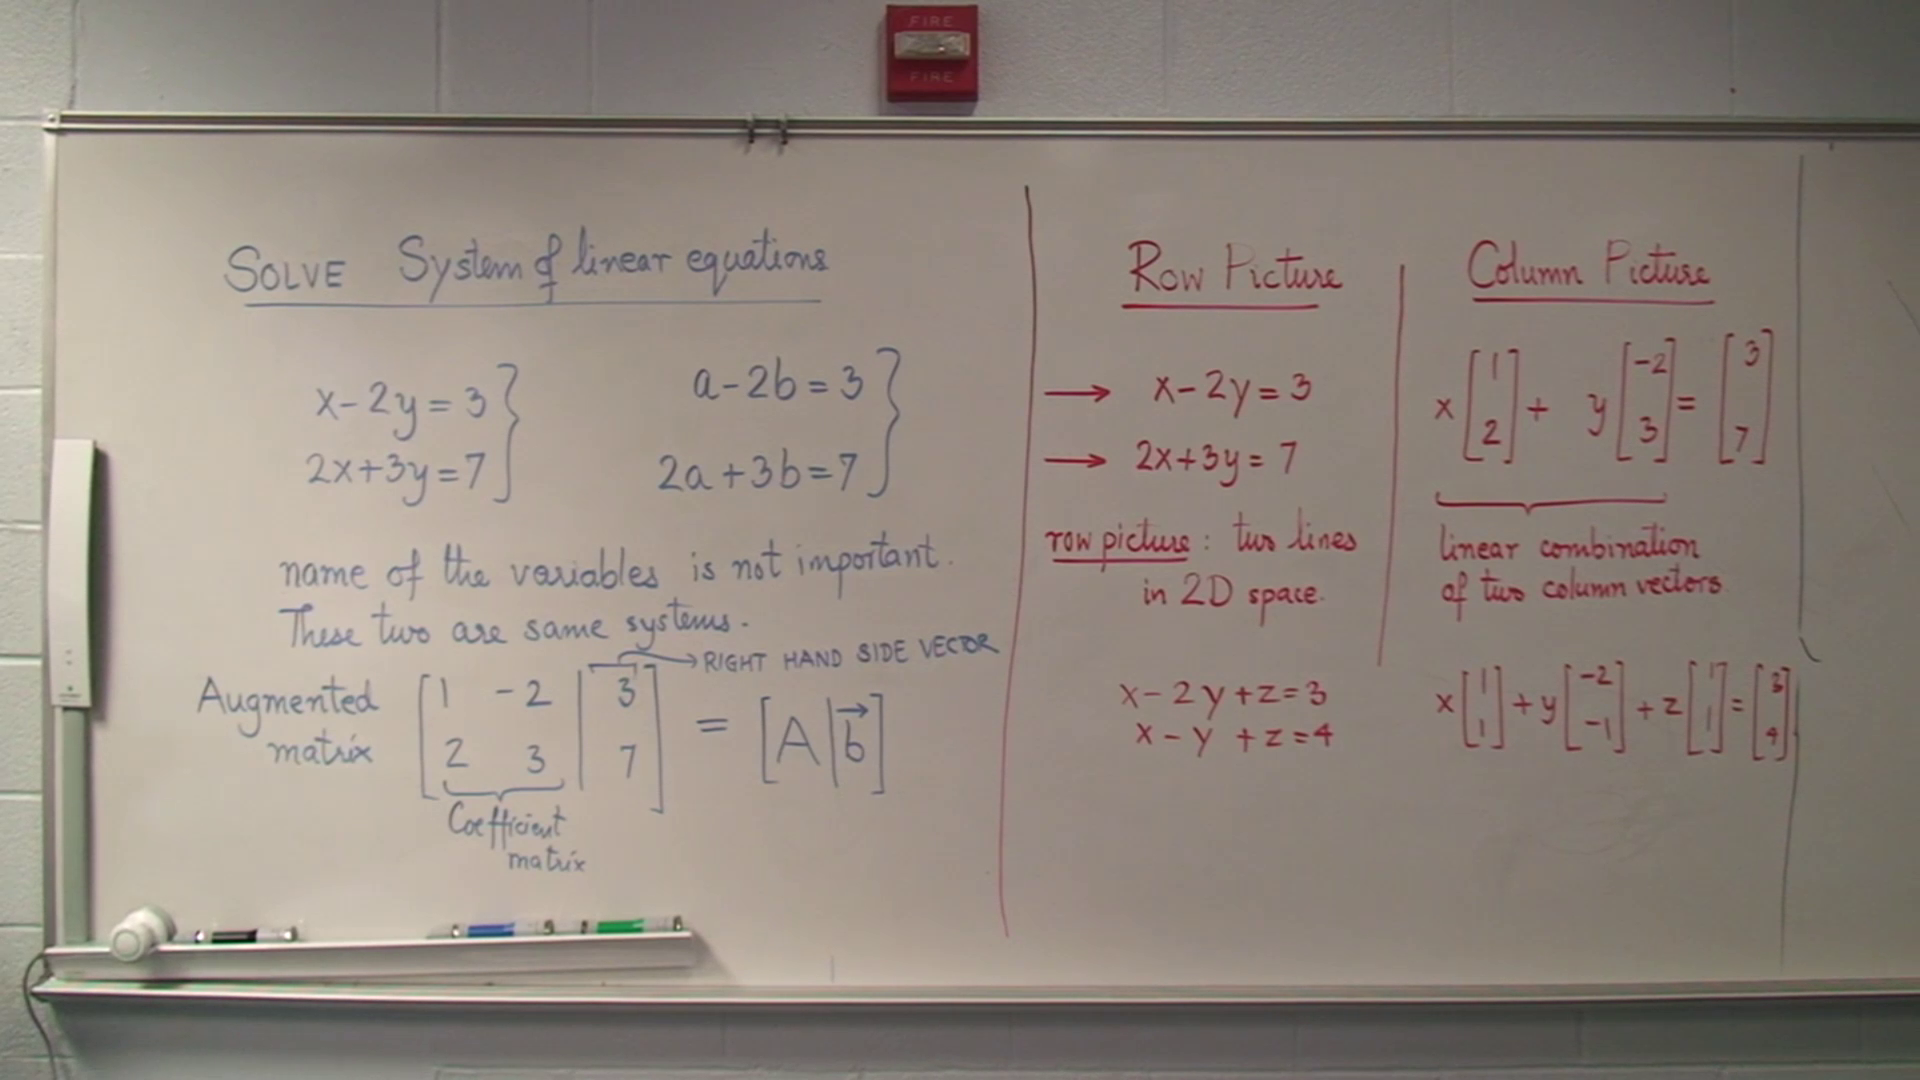 FIRE
FIRE
SOLVE System of linear equations
x-2y=3
2x+3y=7
a-2b=3
2a+3b=7
name of the variables is not important.
These two are same systems.
Augmented matrix [1 -2 | 3] = [A|b⃗]
[2 3 | 7]
→ RIGHT HAND SIDE VECTOR
Coefficient
matrix
Row Picture
→ x-2y=3
→ 2x+3y=7
row picture: two lines
in 2D space.
x-2y+z=3
x-y+z=4
Column Picture
x[1 2] + y[-2 3] = [3 7]
linear combination
of two column vectors
x[1 1] + y[-2 -1] + z[1 1] = [3 4]